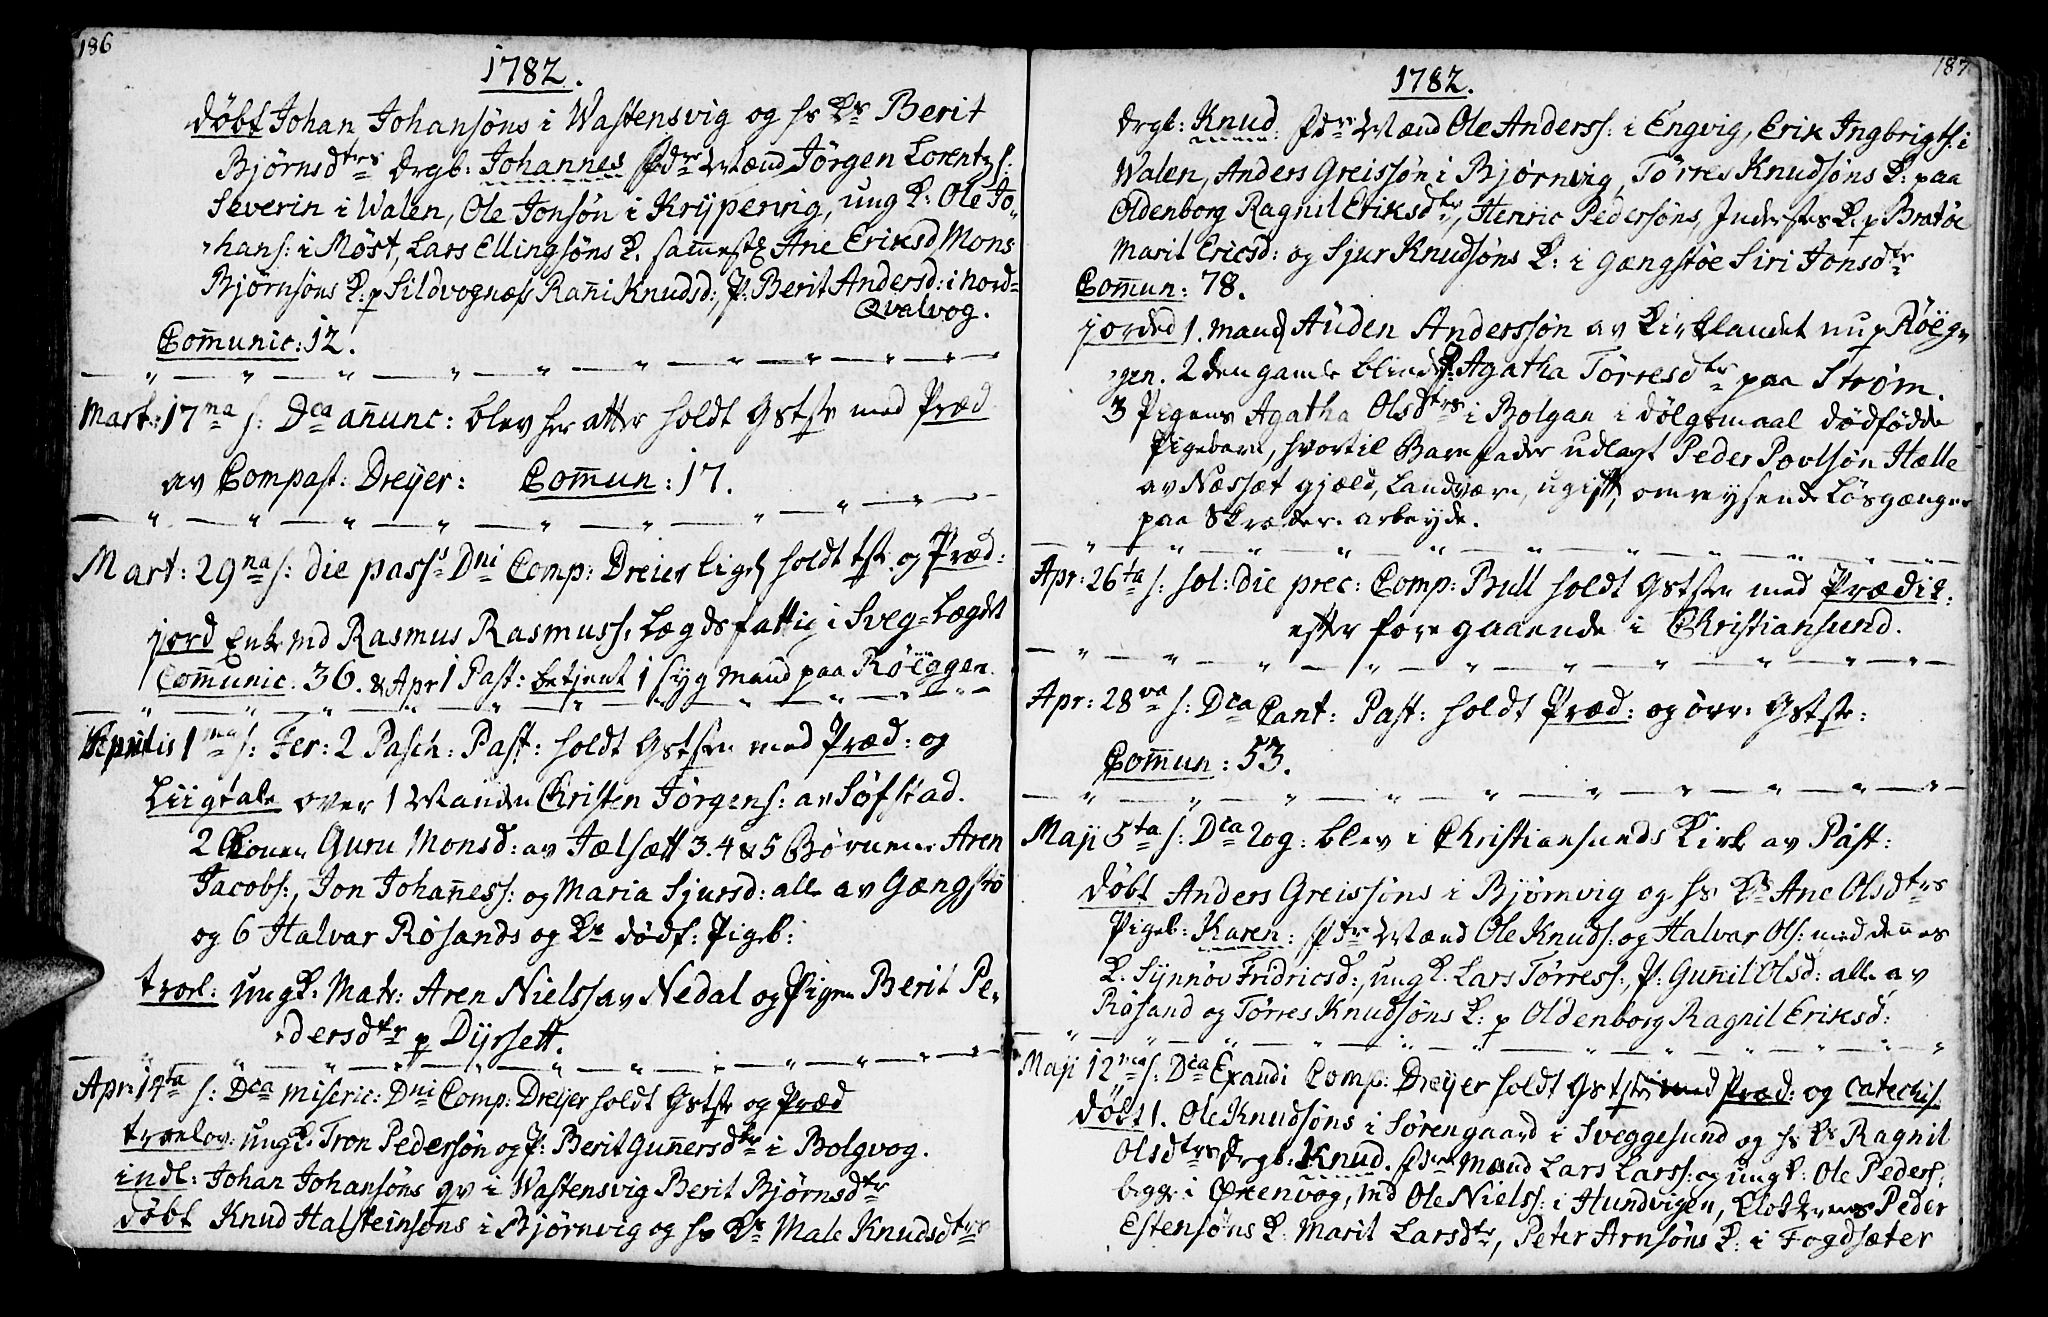 186
1782.
døbt Johan Johansøns i Wastensvig og hs Ks Berit
Bjørnsdtrs drgb: Johannes fdre Mænd Jørgen Lorentzs:
Severin i Walen, Ole Jonsøn i Krypervig, ung K: Ole Jo-
hans: i Møst, Lars Ellingsøns K. samestd Ane Eriksd Mons
Bjørnsøns K: p Sildvognæs Rani Knudsd:, P: Berit Andersd: i nord-
Qvalvog.
Comunic: 12.
Mart: 17na s: Dca anunc: blev her atter holdt Gstste med Præd
av Compast: Dreyer: Comun: 17.
Mart: 29na s: die pass: Dni Comp: Dreier ligel holdt tst. og Præd:
jord Enkemd Rasmus Rasmuss: Lægdsfattig i Sveg-Lægdet
Comunic. 36. & Apr 1 Past: betjent 1 syg mand paa Røeggen.
Aprilis 1ma s: Fer: 2 Pasch: Past: holdt Gststen med Præd: og
Liigtale over 1 Manden Christen Jørgens: av Søfstad.
2 Konen Guru Monsd: av Jælsætt 3.4 & 5 Børnene Aren
Jacobs:, Jon Johaness: og Maria Sjursd: alle av Gængstø
og 6 Halvar Røsands og Ks dødf: Pigeb:
trol: ungK: Matr: Aren Nielss av Nedal og Pigen Berit Pe-
dersdtr p Dyrsett.
Apr: 14ta s: Dca Miseric: Dni Comp: Dreyer holdt Gstste og Præd
troelov: ungK: Tron Pedersøn og P: Berit Gunersdtr i Bolgvog.
indl: Johan Johansøns qv i Wastensvig Berit Bjørnsdtr
døbt Knud Halsteinsøns i Bjørnvig og hs Ks Male Knudsdtrs
187
1782.
drgb: Knud: fdre Mænd Ole Anderss: i Engvig, Erik Ingbrigts: i
Walen, Anders Greissøn i Bjørnvig, Tørres Knudsøns K: paa
Oldenborg Ragnil Eriksdtr, Henric Pedersøns, Inderstes K. p Bratøe
Marit Ericsd: og Sjur Knudsøns K: i Gængstøe Siri Jonsdtr
Comun: 78.
jorded 1. mand Auden Anderssøn av Kirklandet nu p Røeg-
gen. 2 den gamle blinde P: Agatha Tørresdtr paa Strøm.
3 Pigens Agatha Olsdtrs i Bolgan i dølgsmaal dødfødde
Pigebarn, hvortil Barnefader udlagt Peder Povlsøn Hælle
av Næssæt gjæld, Landværn, ugift, omreysende Løsgænger
paa Skræder-arbeyde.
Apr: 26ta s: sol: die prec: Comp: Bull holdt Gststen med Prædik:
efter foregaaende i Christiansund.
Apr: 28va s: Dca Cant: Past: holdt Præd: og øvr. Gstste:
Comun: 53.
Maji 5ta s: Dca Rog: blev i Christiansunds Kirke av Past:
døbt Anders Greissøns i Bjørnvig og hs Ks Ane Olsdtrs
Pigeb: Karen: fdre Mænd Ole Knuds: og Halvar Ols: med denes
K. Synnøv Fridricsd:, ung K. Lars Tørress:, P: Gunil Olsd: alle av
Røsand og Tørres Knudsøns K: p Oldenborg Ragnil Eriksd:
Maji 12ma s: Dca Exaudi Comp: Dreyer holdt Gstste med Præd: og Catechis.
døbt 1. Ole Knudsøns i Sørengaard i Sveggesund og hs Ks Ragnil
Olsdtrs drgb: Knud. fdre Mænd Lars Larss: og ung K: Ole Peders:
begge i Ørenvog, md Ole Niels: i Hundvigen, Klokkerens Peder
Estensøns K: Marit Larsdtr, Peter Arnsøns K: i Fogdsæter